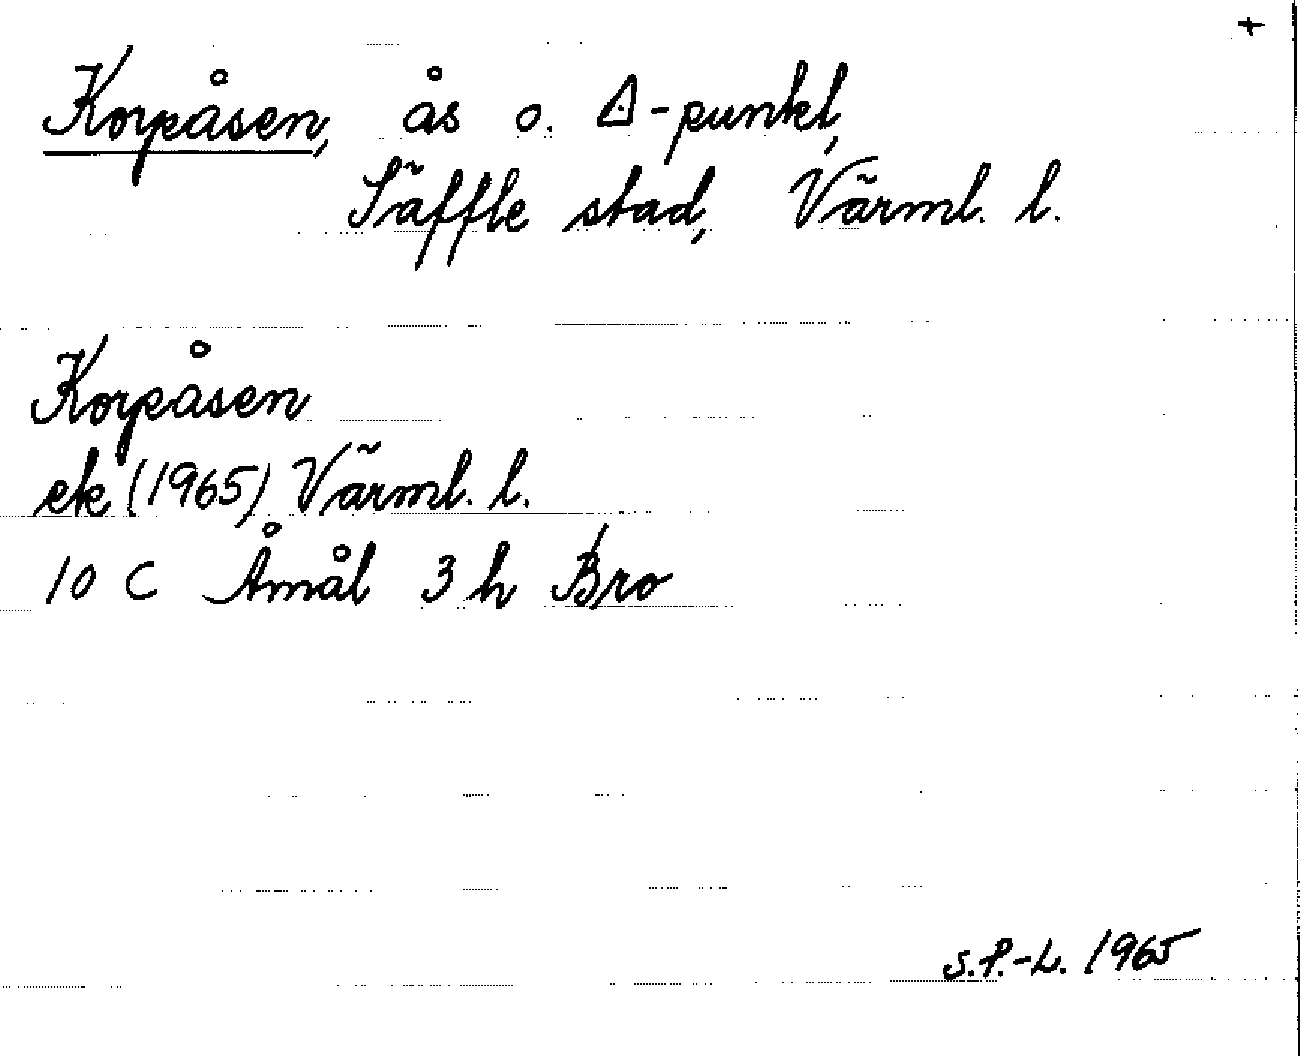 +
Korpåsen, ås o. △-punkt,
Säffle stad, Värml. l.
Korpåsen
ek (1965) Värml. l.
10 C Åmål 3 h Bro
S.P.-L. 1965